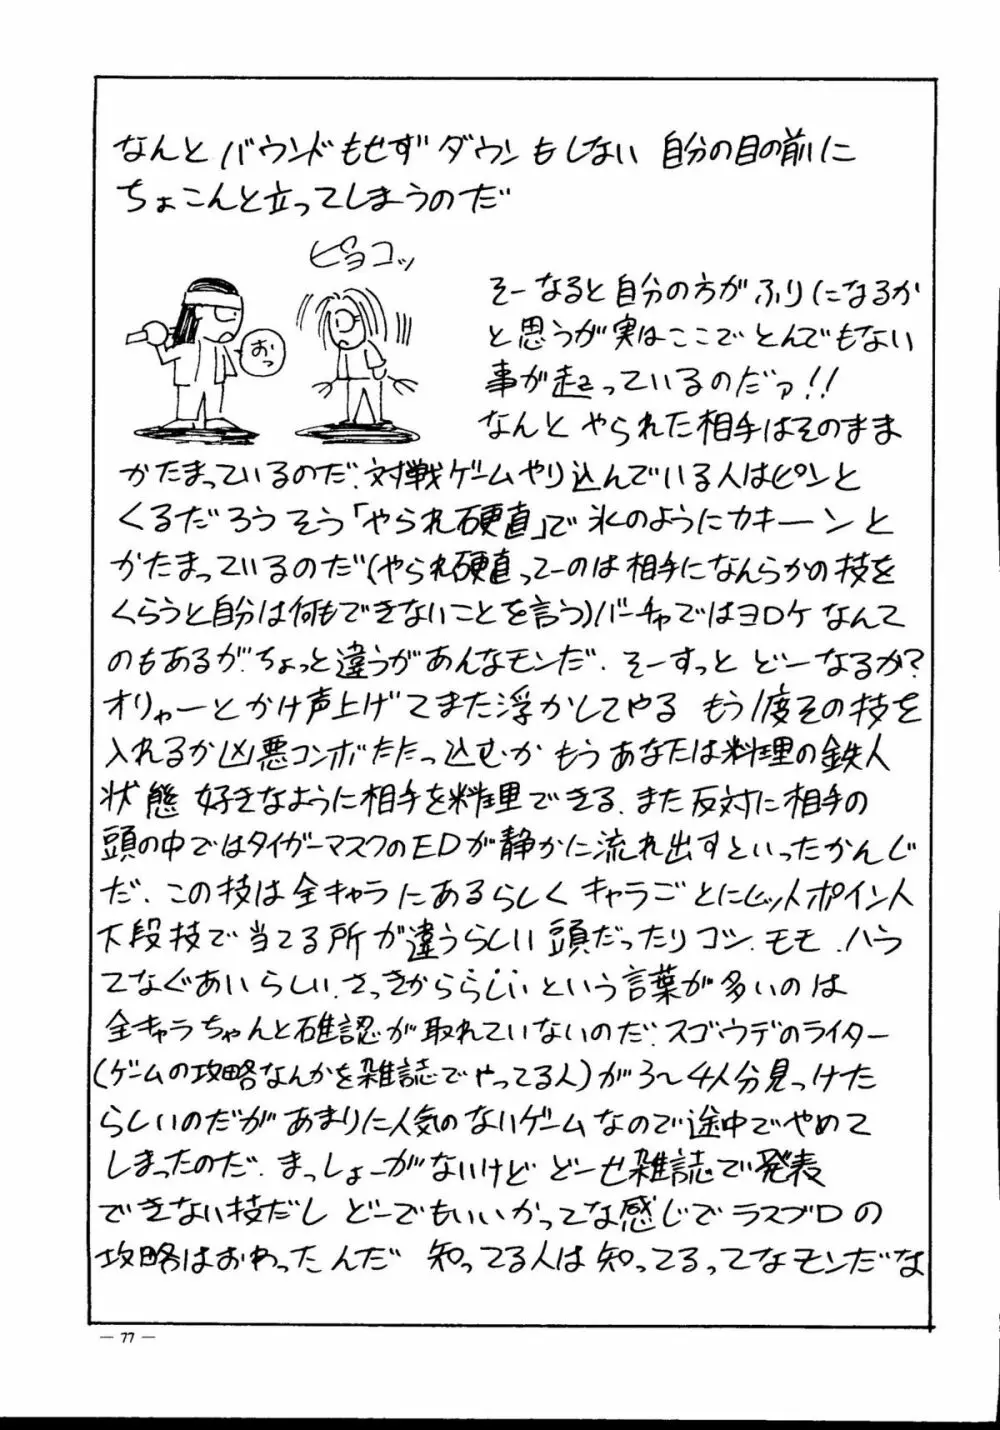 なんとバウンドもせずダウンもしない 自分の目の前に
ちょこんと立ってしまうのだ
ピョコッ
おっ
そーなると自分の方がふりになるか
と思うが実はここでとんでもない
事が起こっているのだァ!!
なんとやられた相手はそのまま
かたまっているのだ、対戦ゲームやり込んでいる人はピンと
くるだろう そう「やられ硬直」で氷のようにカキーンと
かたまっているのだ(やられ硬直ってーのは相手になんらかの技を
くらうと自分は何もできないことを言う)バーチャではヨロケなんて
のもあるが、ちょっと違うがあんなモンだ、そーすっと どーなるか?
オリャーとかけ声上げてまた浮かしてやる もう1度その技を
入れるか凶悪コンボたたっ込むか もうあなたは料理の鉄人
状態 好きなように相手を料理できる、また反対に相手の
頭の中ではタイガーマスクのEDが静かに流れ出すといったかんじ
だ、この技は全キャラにあるらしくキャラごとにヒットポイント
下段技で当てる所が違うらしい 頭だったりコシ、モモ、ハラ
てなぐあいらしい、さっきかららしいという言葉が多いのは
全キャラちゃんと確認が取れていないのだ、スゴウデのライター
(ゲームの攻略なんかを雑誌でやってる人)が3〜4人分見っけた
らしいのだがあまりに人気のないゲームなので途中でやめて
しまったのだ、まっしょーがないけど どーせ雑誌で発表
できない技だし どーでもいいかってな感じでラスブロの
攻略はおわったんだ 知ってる人は知ってるってなモンだな
— 77 —